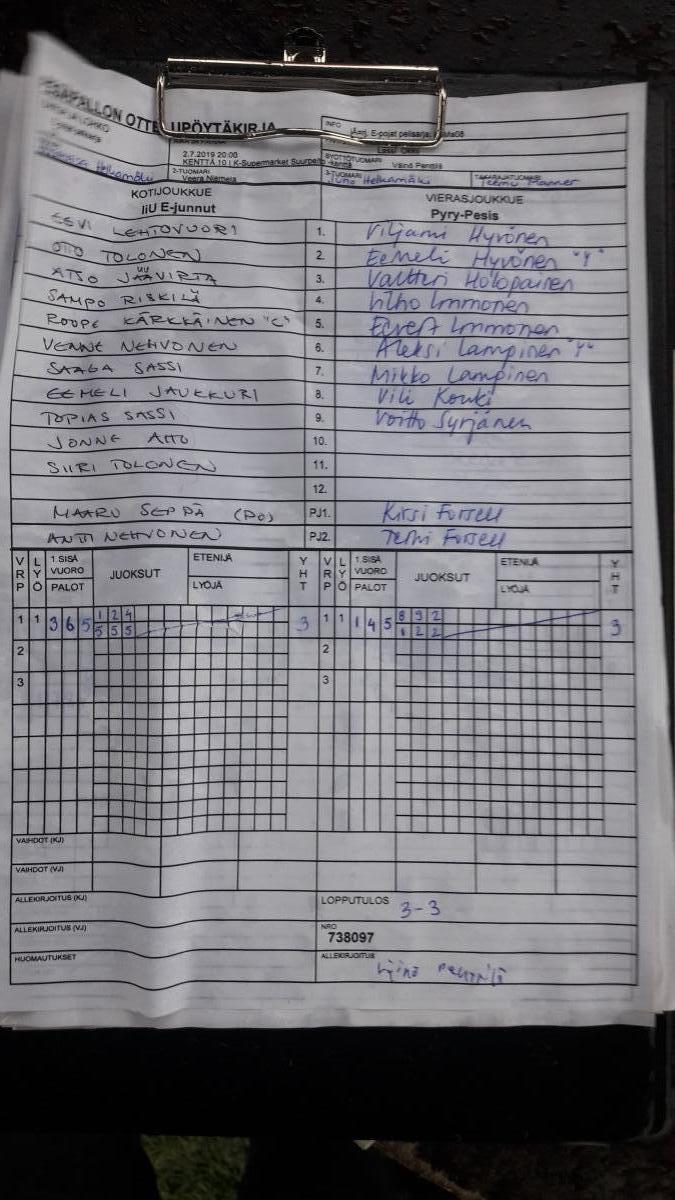 UPÖYTÄKIRJA
INFO
E-pojat pelisarja
2.7.2019 20:00
KENTTÄ 10 | K-Supermarket Suurpelto
SYÖTTÖTUOMARI
Väinö Penttilä
2-TUOMARI
Veera Niemelä
3-TUOMARI
Juho Heikamäki
TAKARAJATUOMARI
Teemu Manner
KOTIJOUKKUE
IiU E-junnut
VIERASJOUKKUE
Pyry-Pesis
EEVI LEHTOVUORI 1. Viljami Hyvönen
OTTO TOLONEN 2. Eemeli Hyvönen
ATSO JÄÄVIRTA 3. Valtteri Holopainen
SAMPO RISKILÄ 4. Immonen
ROOPE KÄRKKÄINEN "C" 5. Eevert Immonen
VENNE NEHVONEN 6. Aleksi Lampinen
SAAGA SASSI 7. Mikko Lampinen
EEMELI JAUKKURI 8. Vili Kouki
TOPIAS SASSI 9. Voitto Syrjänen
JONNE 10.
SIIRI TOLONEN 11.
12.
MAARU SEPPÄ (PO) PJ1. Kirsi Forsell
ANTTI NEHVONEN PJ2. Forsell
VRP LYÖ 1.SISÄ VUORO PALOT JUOKSUT ETENIJÄ LYÖJÄ YHT VRP LYÖ 1.SISÄ VUORO PALOT JUOKSUT ETENIJÄ LYÖJÄ YHT
1 1 3 6 5 1 2 4 3 1 1 1 4 5 8 9 2 3
5 5 5 1 2 2
2 2
3 3
VAIHDOT (KJ)
VAIHDOT (VJ)
ALLEKIRJOITUS (KJ) LOPPUTULOS 3-3
ALLEKIRJOITUS (VJ) NRO 738097
HUOMAUTUKSET ALLEKIRJOITUS Väinö Penttilä